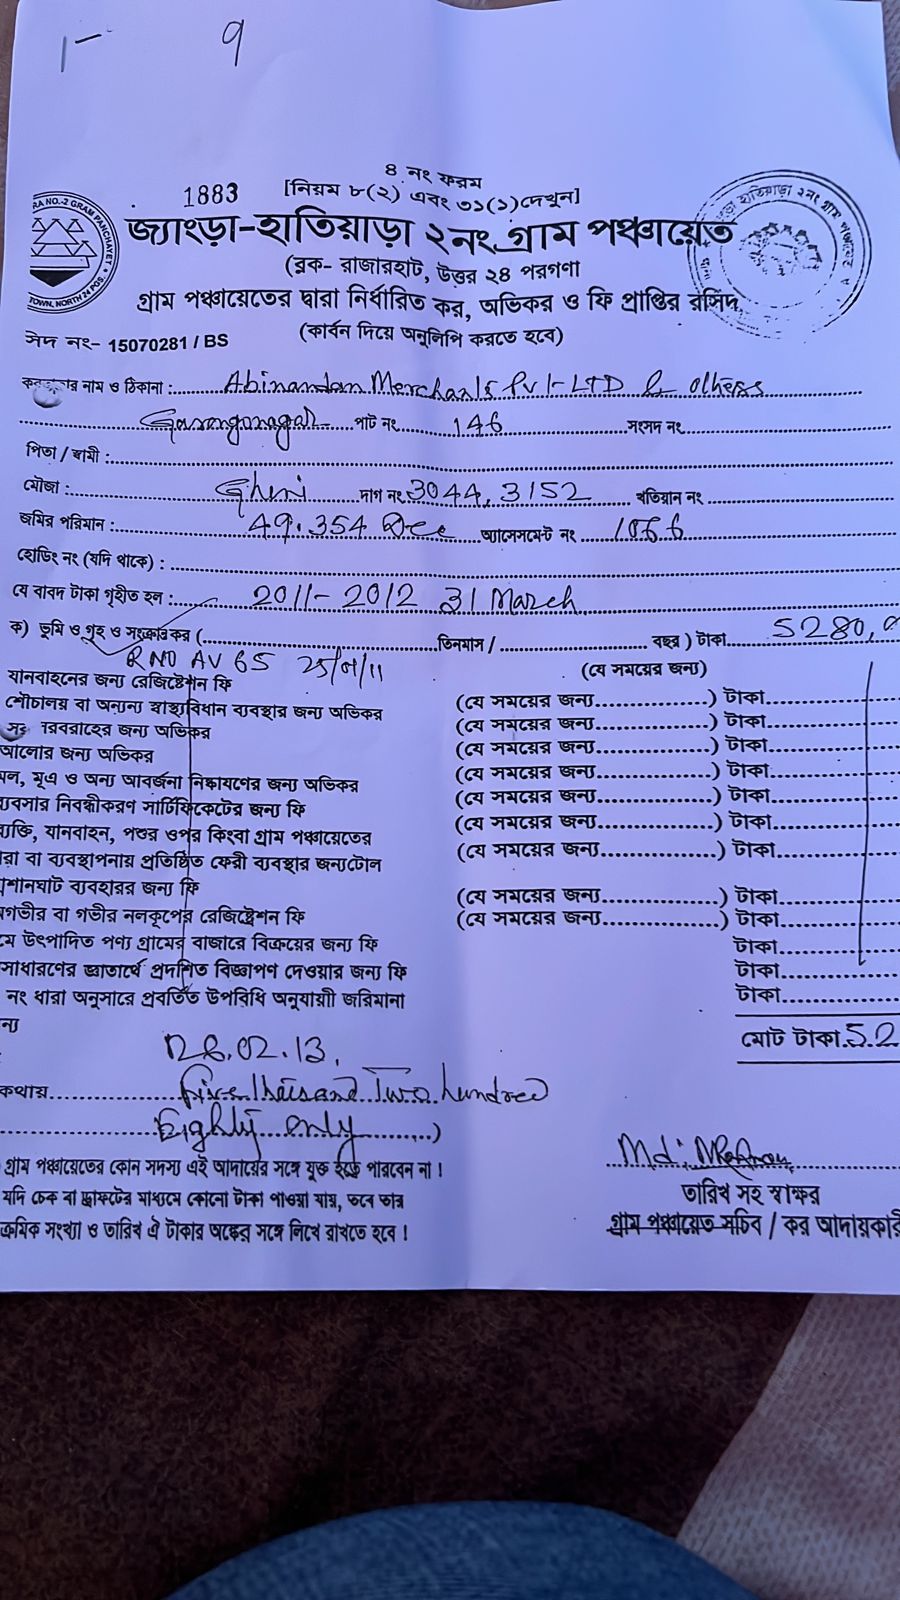 1- 9
৪ নং ফরম
1883 [নিয়ম ৮(২) এবং ৩১(১)দেখুন]
RA NO.-2 GRAM PANCHAYET
TOWN. NORTH 24 PGS.
জ্যাংড়া-হাতিয়াড়া ২নং গ্রাম পঞ্চায়েত
(ব্লক- রাজারহাট, উত্তর ২৪ পরগণা
গ্রাম পঞ্চায়েতের দ্বারা নির্ধারিত কর, অভিকর ও ফি প্রাপ্তির রসিদ
(কার্বন দিয়ে অনুলিপি করতে হবে)
সিদ নং- 15070281 / BS
নাম ও ঠিকানা : Abinandan Merchants Pvt LTD & others
পাট নং 146 সংসদ নং
পিতা / স্বামী :
মৌজা : Ghuni দাগ নং 3044, 3152 খতিয়ান নং
জমির পরিমান : 49.354 Dec অ্যাসেসমেন্ট নং 1066
হোডিং নং (যদি থাকে) :
যে বাবদ টাকা গৃহীত হল : 2011-2012 31 March
ক) ভূমি ও গৃহ ও সংক্রান্ত কর ( তিনমাস / বছর ) টাকা 5280,0
RNO AV 65 25/01/11 (যে সময়ের জন্য)
যানবাহনের জন্য রেজিষ্ট্রেশন ফি (যে সময়ের জন্য ) টাকা
শৌচালয় বা অন্যন্য স্বাস্থ্যবিধান ব্যবস্থার জন্য অভিকর (যে সময়ের জন্য ) টাকা
রবরাহের জন্য অভিকর (যে সময়ের জন্য ) টাকা
আলোর জন্য অভিকর (যে সময়ের জন্য ) টাকা
মল, মূএ ও অন্য আবর্জনা নিষ্কাযণের জন্য অভিকর (যে সময়ের জন্য ) টাকা
ব্যবসার নিবন্ধীকরণ সার্টিফিকেটের জন্য ফি (যে সময়ের জন্য ) টাকা
ব্যক্তি, যানবাহন, পশুর ওপর কিংবা গ্রাম পঞ্চায়েতের
রা বা ব্যবস্থাপনায় প্রতিষ্ঠিত ফেরী ব্যবস্থার জন্যটোল (যে সময়ের জন্য ) টাকা
শানঘাট ব্যবহারর জন্য ফি (যে সময়ের জন্য ) টাকা
গভীর বা গভীর নলকূপের রেজিষ্ট্রেশন ফি (যে সময়ের জন্য ) টাকা
মে উৎপাদিত পণ্য গ্রামের বাজারে বিক্রয়ের জন্য ফি টাকা
সাধারণের জ্ঞাতার্থে প্রদর্শিত বিজ্ঞাপণ দেওয়ার জন্য ফি টাকা
নং ধারা অনুসারে প্রবর্তিত উপবিধি অনুযায়ী জরিমানা টাকা
ন্য
মোট টাকা 52
28.02.13.
কথায় Five thousand Two hundred
Eighty only )
গ্রাম পঞ্চায়েতের কোন সদস্য এই আদায়ের সঙ্গে যুক্ত হতে পারবেন না !
যদি চেক বা ড্রাফটের মাধ্যমে কোনো টাকা পাওয়া যায়, তবে তার
ক্রমিক সংখ্যা ও তারিখ ঐ টাকার অঙ্কের সঙ্গে লিখে রাখতে হবে !
Md:
তারিখ সহ স্বাক্ষর
গ্রাম পঞ্চায়েত সচিব / কর আদায়কারী